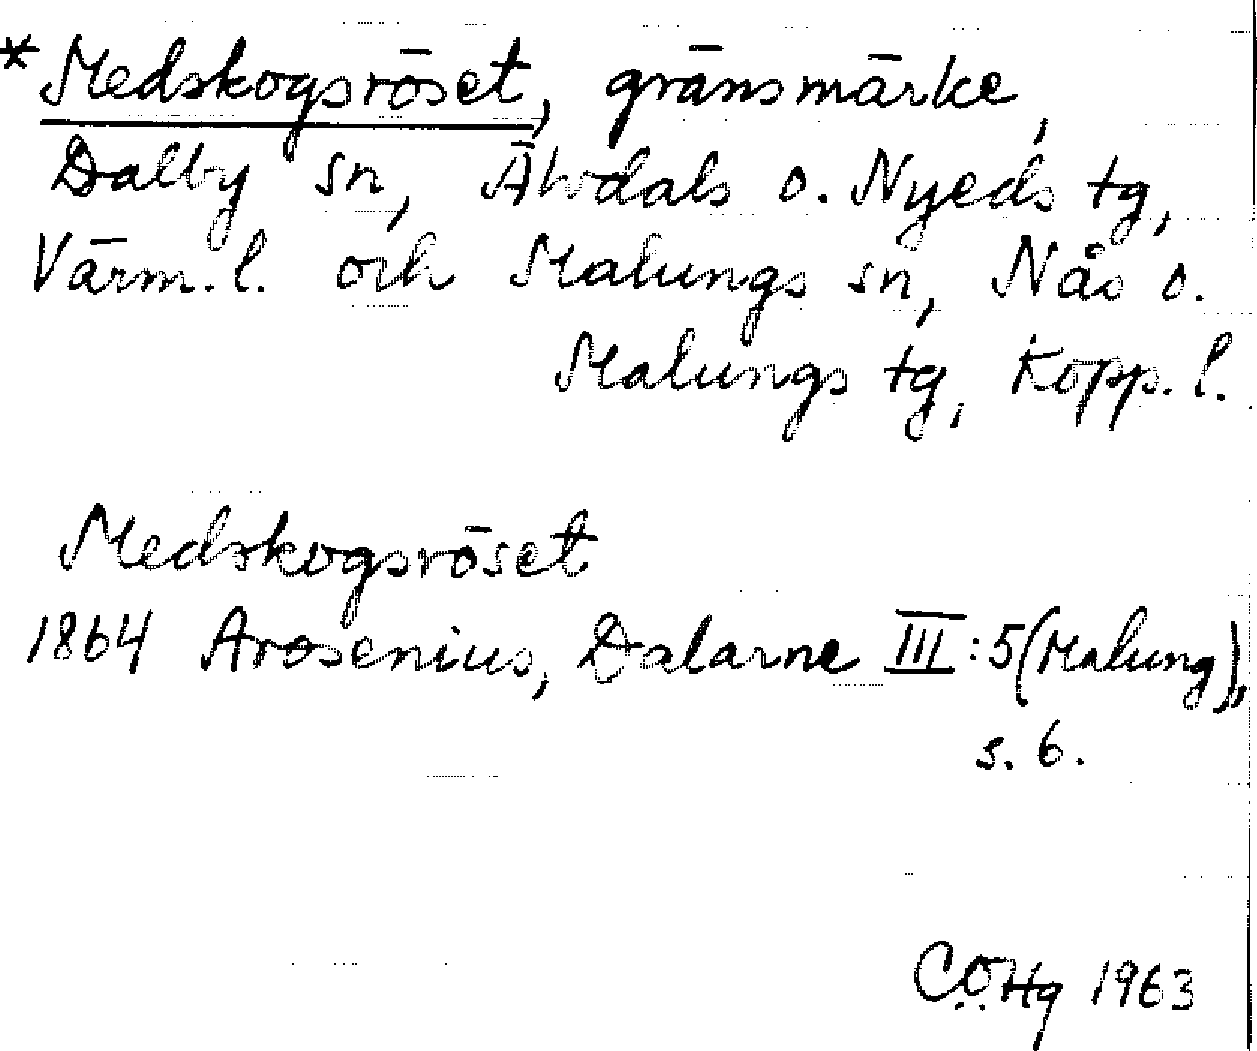 *Medskogsröset, gränsmärke,
Dalby sn, Älvdals o. Nyeds tg,
Värm. l. och Malungs sn, Nås o.
Malungs tg, Kopp. l.
Medskogsröset
1864 Arosenius, Dalarne III:5 (Malung),
s. 6.
CÖHg 1963